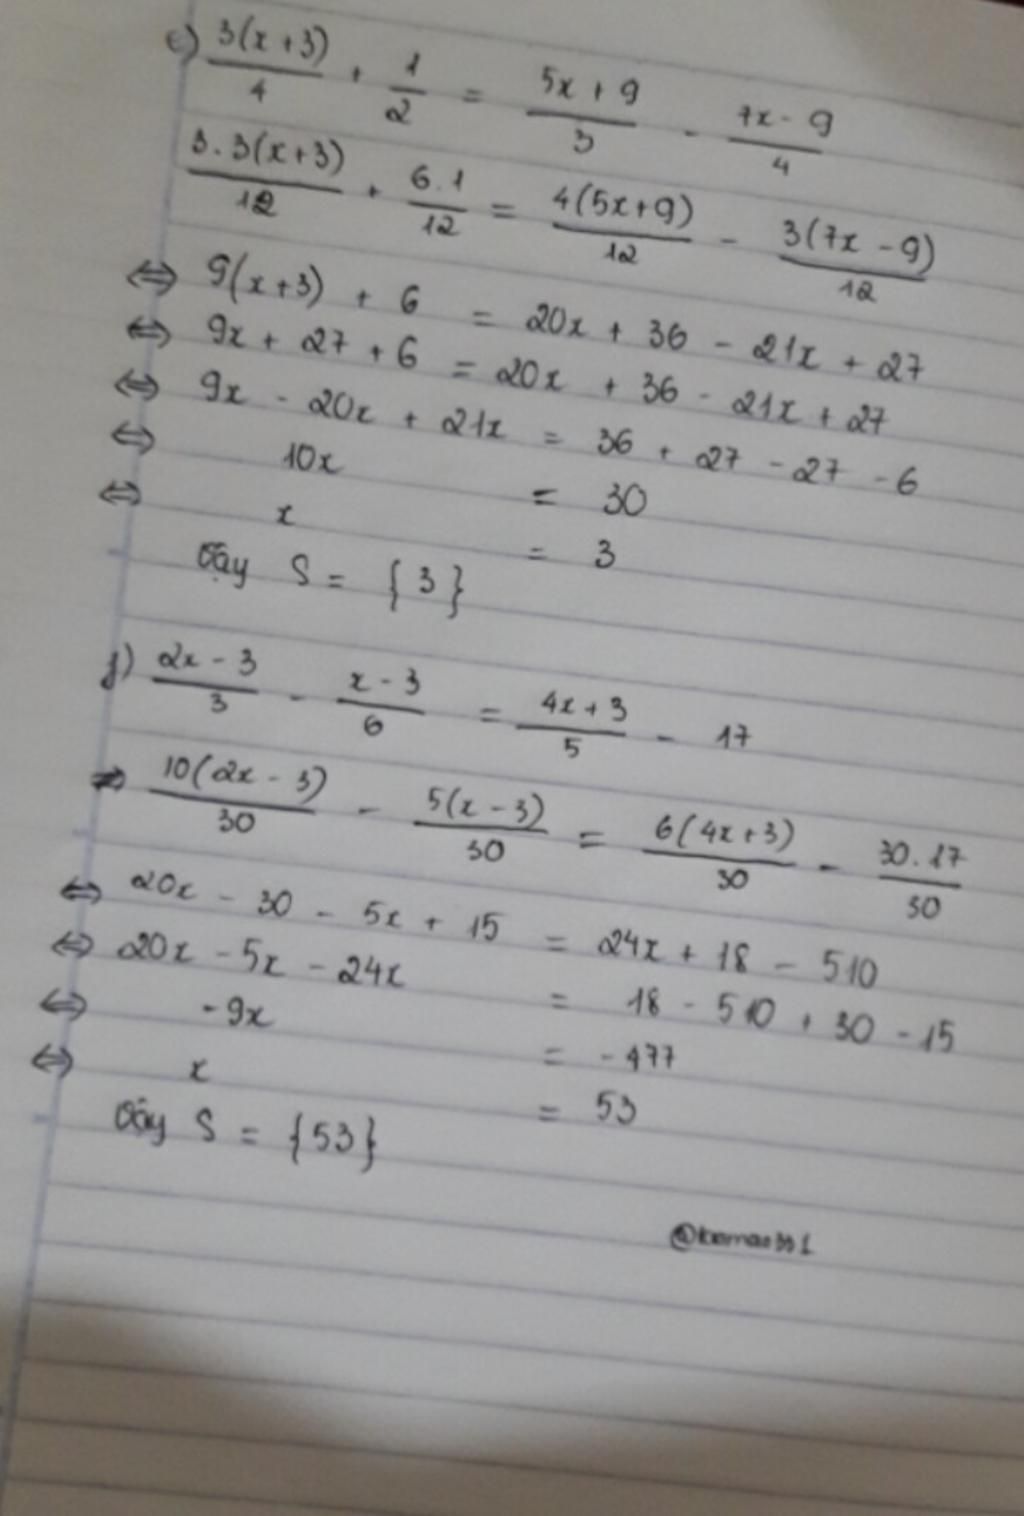 e) 3(x+3)/4 + 1/2 = 5x+9/3 - 7x-9/4
3.3(x+3)/12 + 6.1/12 = 4(5x+9)/12 - 3(7x-9)/12
⇔ 9(x+3) + 6 = 20x + 36 - 21x + 27
⇔ 9x + 27 + 6 = 20x + 36 - 21x + 27
⇔ 9x - 20x + 21x = 36 + 27 - 27 - 6
⇔ 10x = 30
⇔ x = 3
Vậy S = {3}
f) 2x-3/3 - x-3/6 = 4x+3/5 - 17
⇔ 10(2x-3)/30 - 5(x-3)/30 = 6(4x+3)/30 - 30.17/30
⇔ 20x - 30 - 5x + 15 = 24x + 18 - 510
⇔ 20x - 5x - 24x = 18 - 510 + 30 - 15
⇔ -9x = -477
⇔ x = 53
Vậy S = {53}